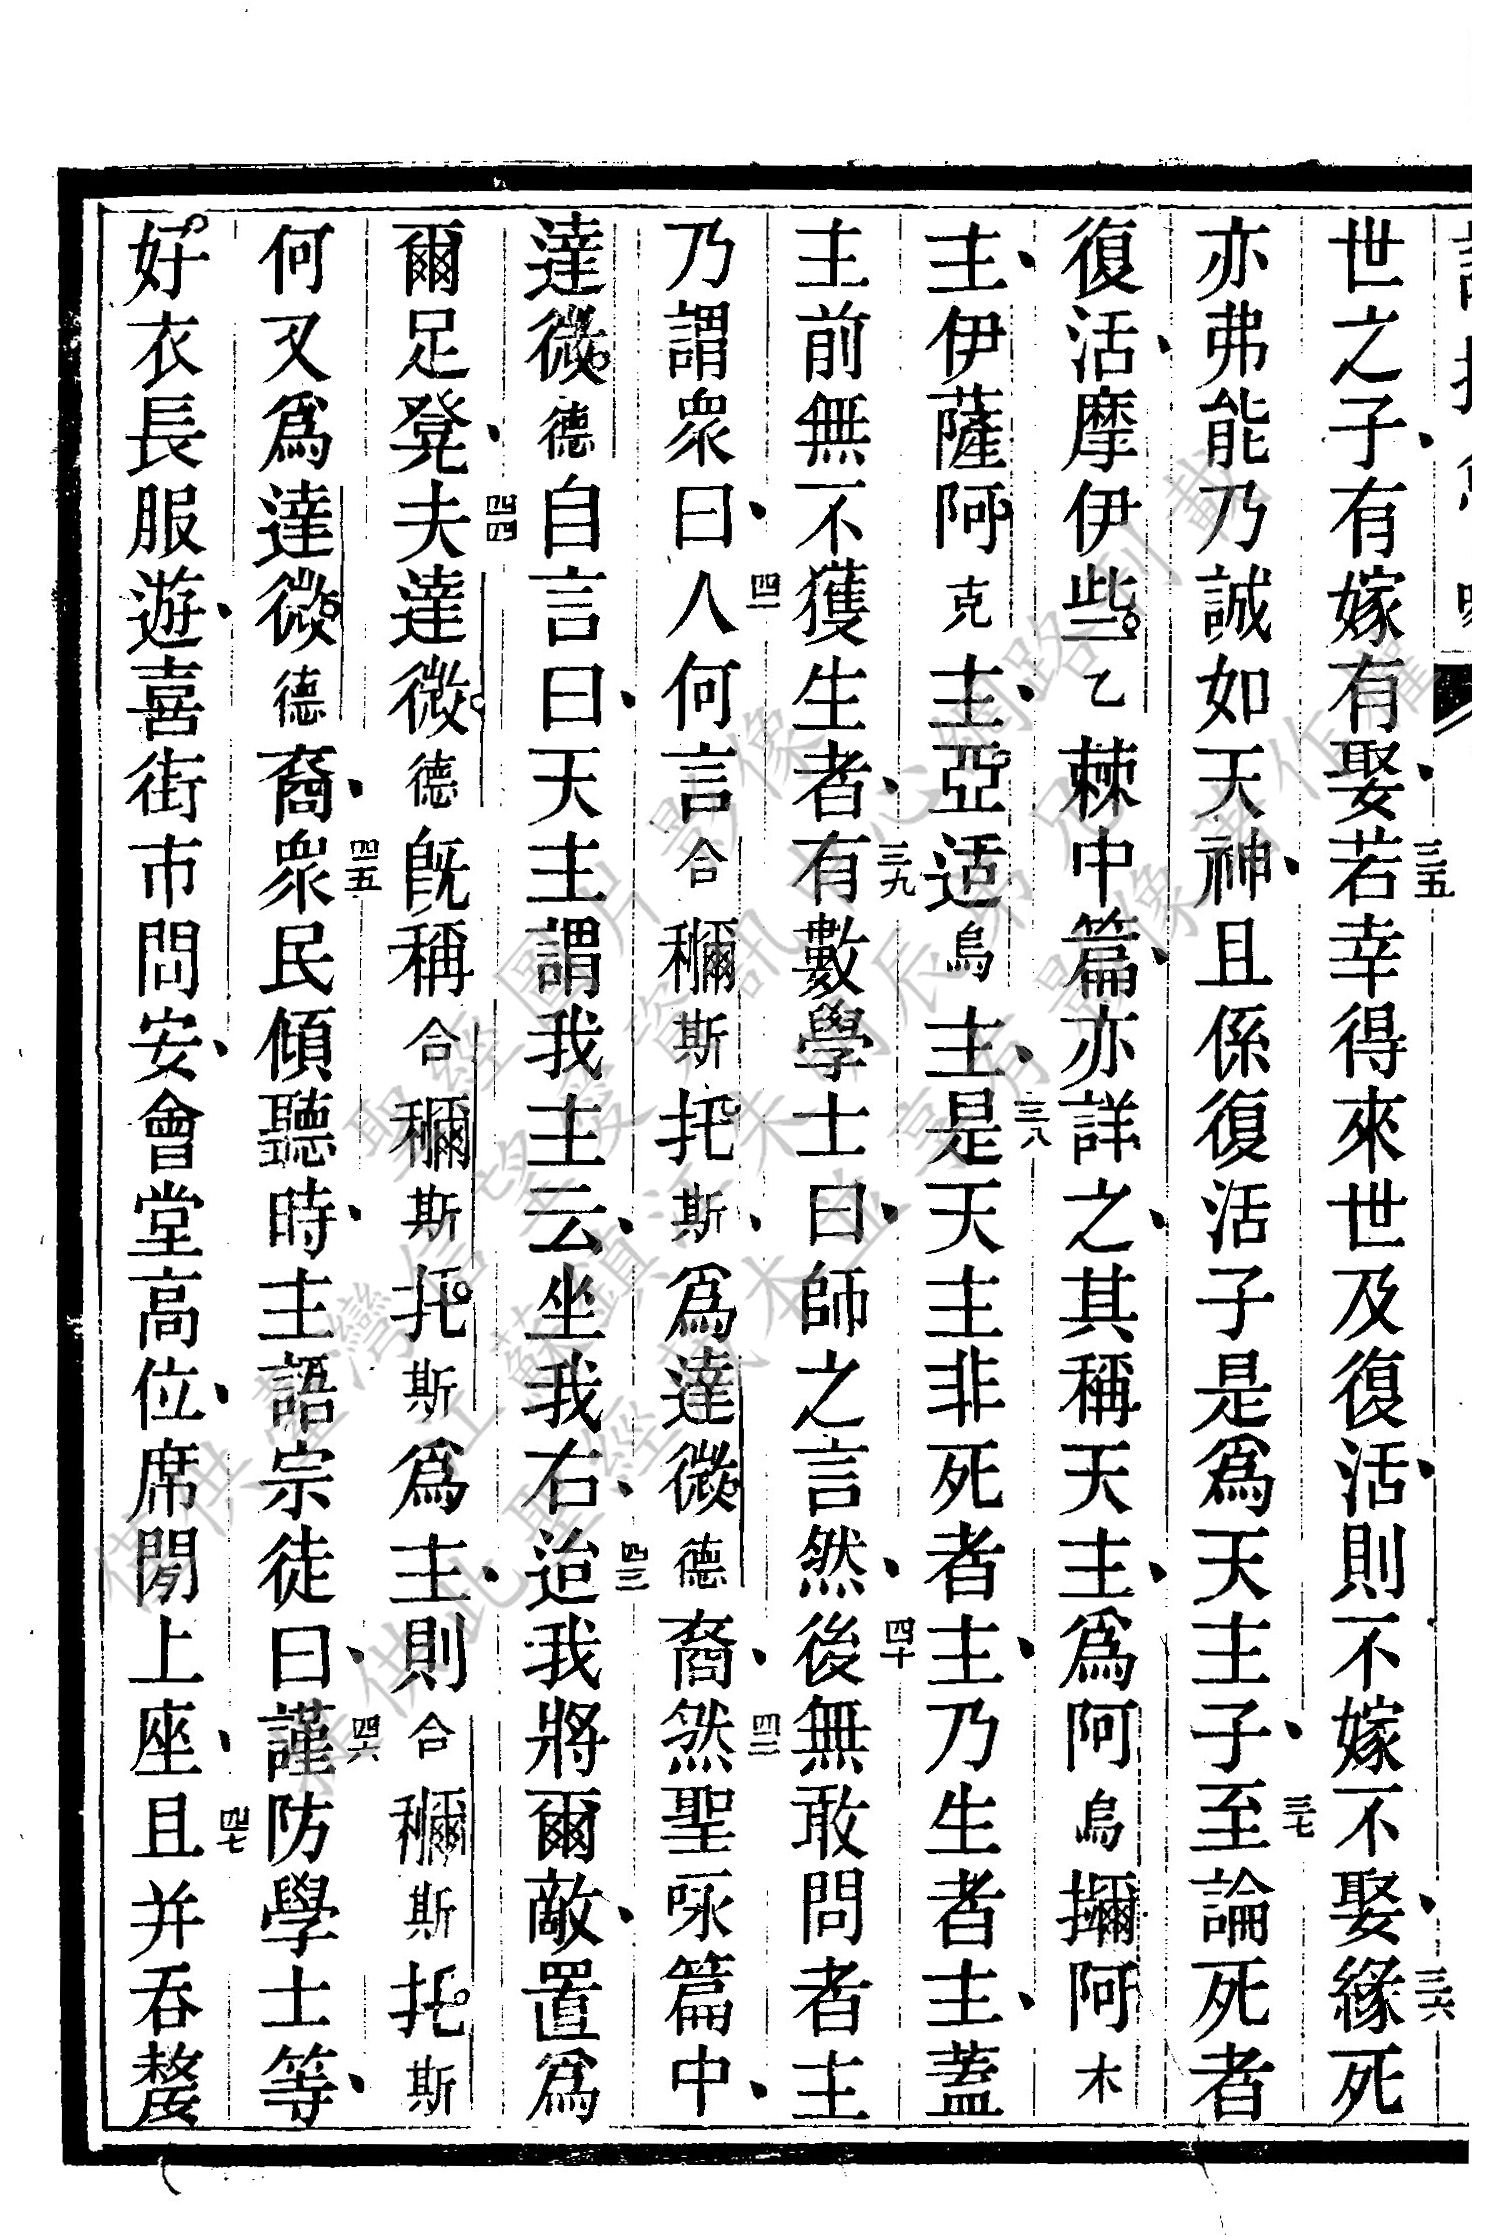 世之子有嫁有娶三五若幸得來世及復活則不嫁不娶三六緣死
亦弗能乃誠如天神且係復活子是爲天主子三七至論死者
復活摩伊些乙棘中篇亦詳之其稱天主爲阿烏攧阿木
主伊薩阿克主亞适烏主三八是天主非死者主乃生者主蓋
主前無不獲生者三九有數學士曰師之言然四十後無敢問者主
乃謂衆曰四一人何言合穪斯托斯爲達微德裔四二然聖咏篇中
達微德自言曰天主謂我主云坐我右四三迨我將爾敵置爲
爾足凳四四夫達微德旣稱合穪斯托斯爲主則合穪斯托斯
何又爲達微德裔四五衆民傾聽時主語宗徒曰四六謹防學士等
好衣長服遊喜街市問安會堂高位席閒上座四七且并吞嫠